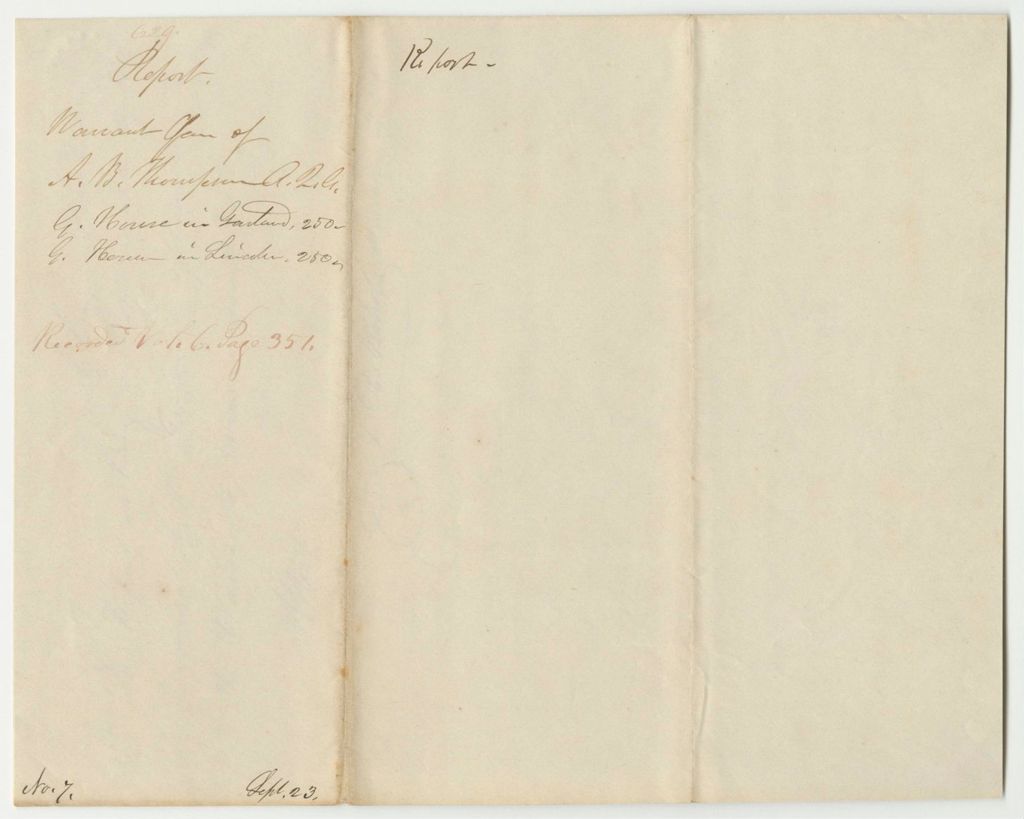 629.
Report.
Warrant favr of
A. B. Thompson A. Q. G.
G. House in Garland, 250-
G. House in Lincoln. 250-
Recorded Vol. 6. Page 351.
No. 7.
Sept. 23.
Report -